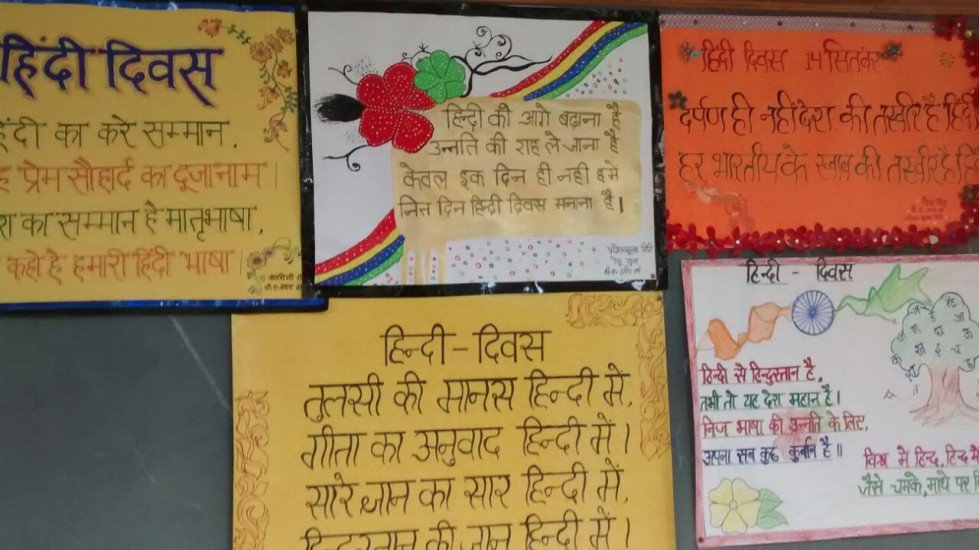 हिंदी दिवस
हिंदी का करे सम्मान,
प्रेम सौहार्द का दूजा नाम।
का सम्मान है मातृभाषा,
कहो है हमारी हिंदी भाषा।
हिन्दी को आगे बढ़ाना है
उन्नति की राह ले जाना है
केवल इक दिन ही नही हमे
नित दिन हिंदी दिवस मनाना है।
हिंदी दिवस 14 सितंबर
दर्पण ही नहीं देश की तस्वीर है
हर भारतीय के ख्वाब की
हिन्दी - दिवस
तुलसी की मानस हिन्दी में,
गीता का अनुवाद हिन्दी में।
सारे ज्ञान का सार हिन्दी में,
हिन्दी - दिवस
हिन्दी से हिन्दुस्तान है,
तभी तो यह देश महान है।
निज भाषा की उन्नति के लिए,
अपना सब कुछ कुर्बान है॥
विश्व में हिन्द, हिन्द में
जैसे चमके, माथे पर